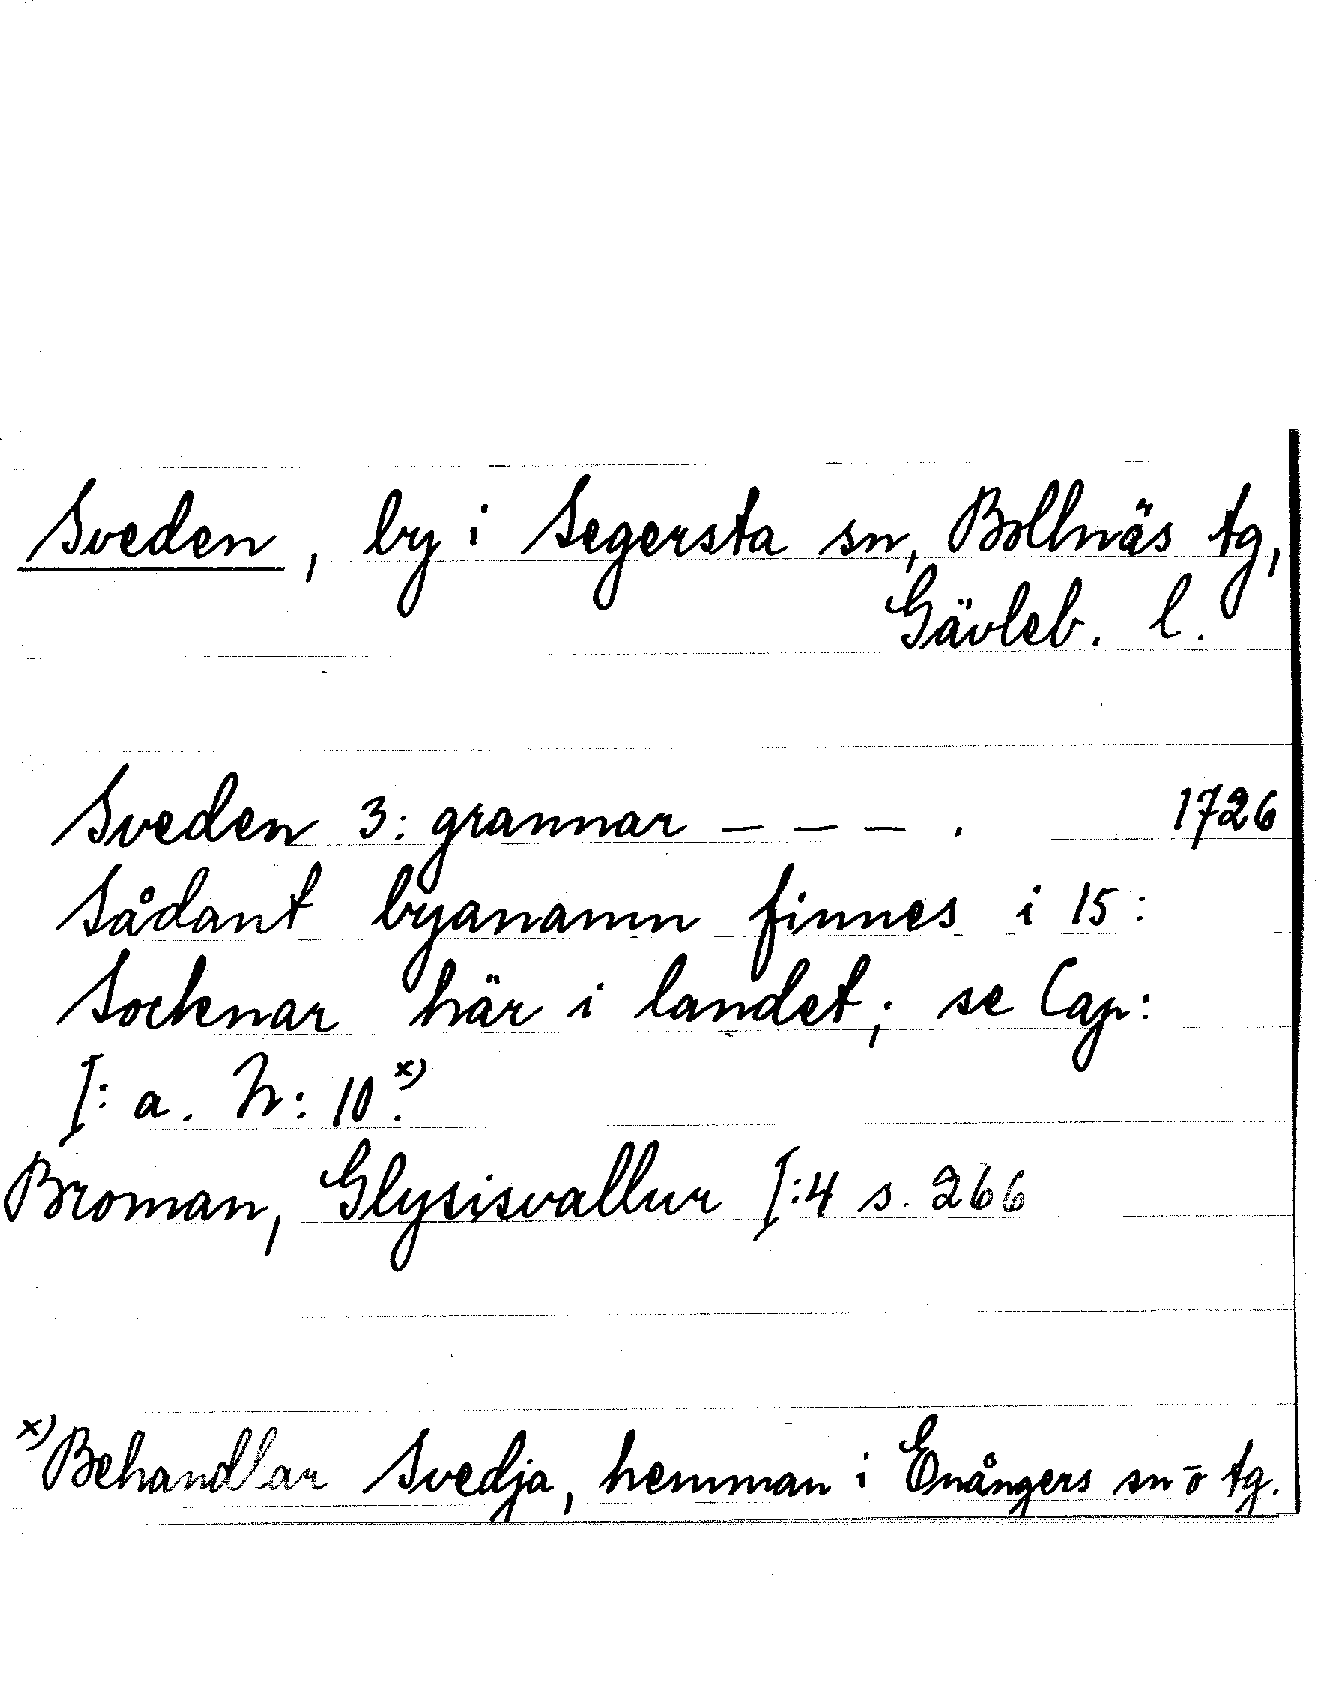 Sveden, by i Segersta sn, Bollnäs tg,
Gävleb. l.
Sveden 3: grannar — — — . 1726
Sådant byanamn finnes i 15:
Socknar här i landet; se Cap:
I: a. N: 10.x)
Broman, Glysisvallur I:4 s. 266
x) Behandlar Svedja, hemman i Enångers sn o tg.